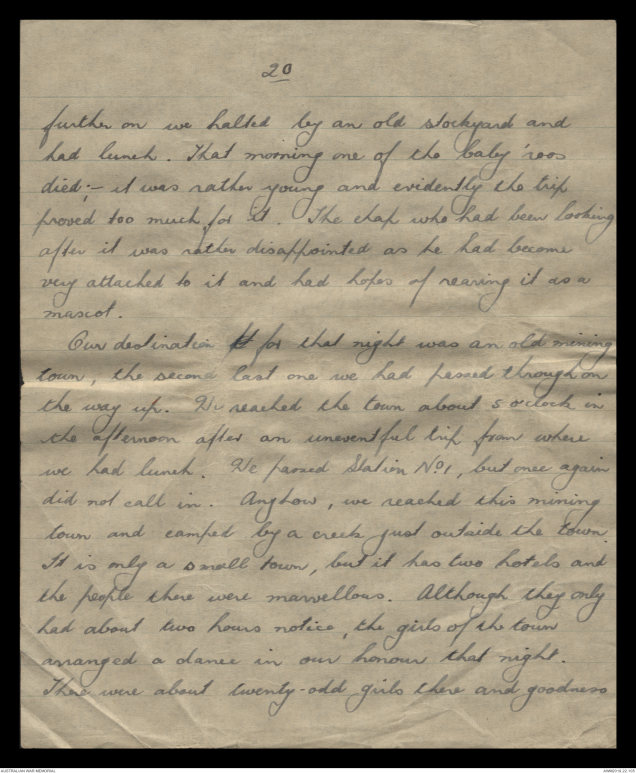 20
further on we halted by an old stockyard and
had lunch. That morning one of the baby 'roos
died;- it was rather young and evidently the trip
proved too much for it. The chap who had been looking
after it was rather disappointed as he had become
very attached to it and had hopes of rearing it as a
mascot.
Our destination for that night was an old mining
town, the second last one we had passed through on
the way up. We reached the town about 5 o'clock in
the afternoon after an uneventful trip from where
we had lunch. We passed Station No 1, but once again
did not call in. Anyhow, we reached this mining
town and camped by a creek just outside the town.
It is only a small town, but it has two hotels and
the people there were marvellous. Although they only
had about two hours notice, the girls of the town
arranged a dance in our honour that night.
There were about twenty-odd girls there and goodness
AUSTRALIAN WAR MEMORIAL